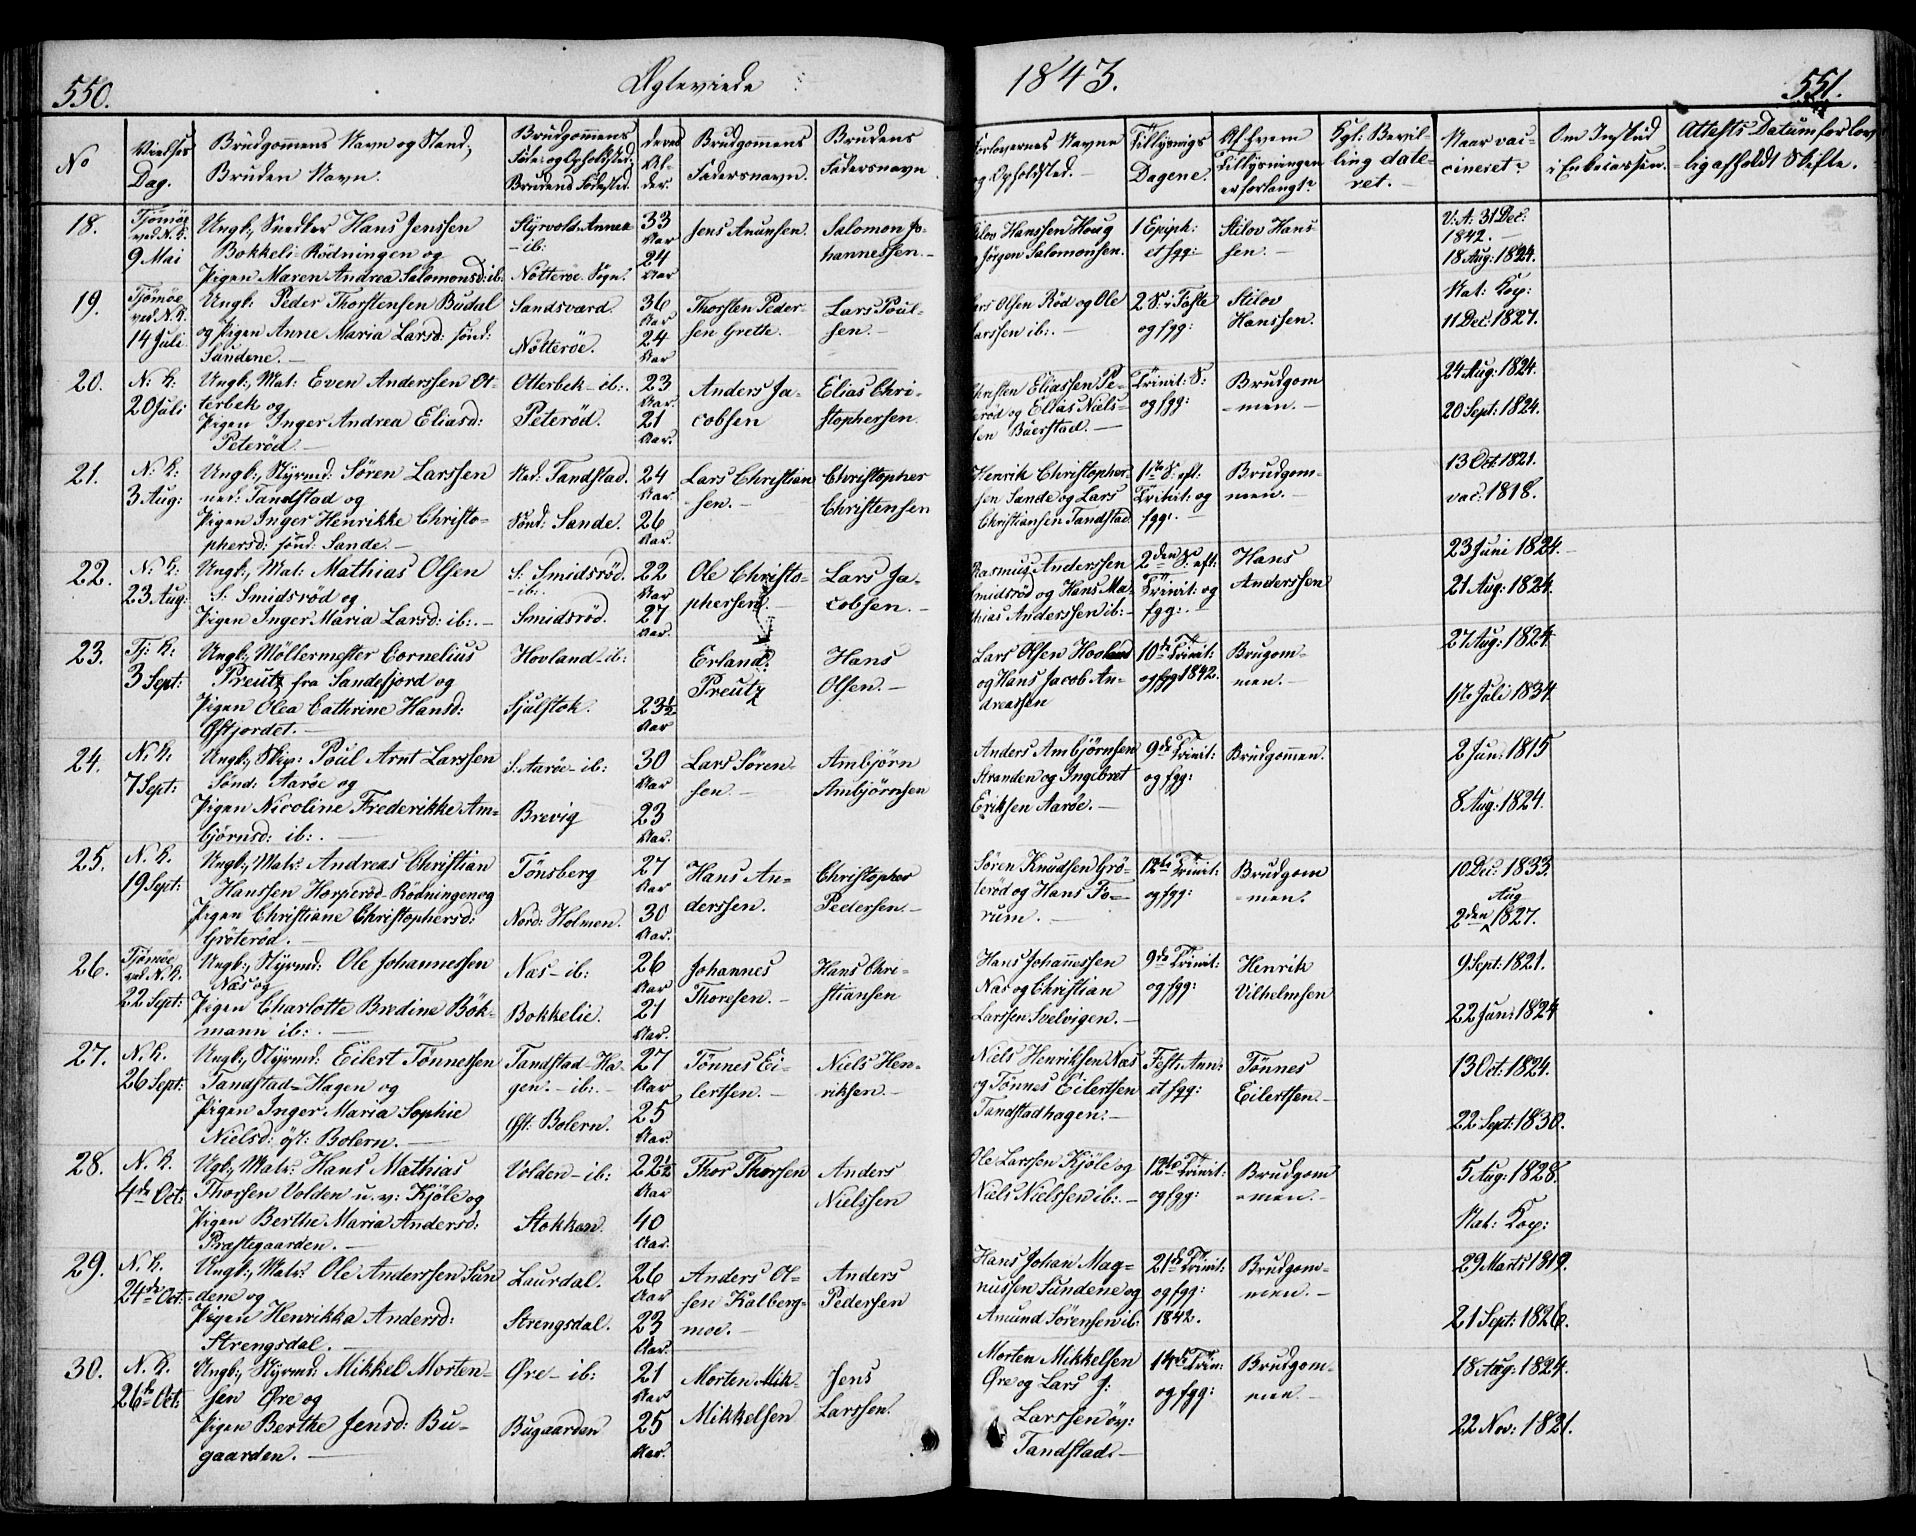 550.
Ægteviede
1843.
551.
No
Vielses Dag.
Brudgommens Navn og Stand,
Bruden Navn.
Brudgommens
Føde- og Opholdsted,
Brudens Fødested.
deres
Al-
der.
Brudgommens
Fadersnavn.
Brudens
Fadersnavn
Forlovernes Navne
og Opholdsted.
Tillysnigs
Dagene.
Af hvem
Tillysningen
er forlangt?
Kgl: Bevil-
ling date-
ret.
Naar vac-
cineret?
Om Indført
i Enkecassen.
Attests Datum for lov-
lig afholdt Skifte.
18.
Tjømøe
ved N. K.
9 Mai
Ungk: Snedker Hans Jenssen
Bokkeli-Rødningen og
Pigen Maren Andrea Salomonsd: ib:
Styrvold Annex
- ib:
Nøtterøe Sogn.
33
Aar
24
Aar
Jens Amundsen.
Salomon Jo-
hannessen.
Stilov Hanssen Houg
og Jørgen Salomonsen.
1 Epiph:
et fgg:
Stilov Hans-
sen.
V: A: 31 Dec:
1842.
18 Aug: 1824.
19.
Tjømøe
ved N. K.
14 Juli
Ungk: Peder Thorstensen Budal
og Pigen Anne Maria Larsd: sønd:
Sundene.
Sandsværd.
Nøtterøe.
36
Aar
24
Aar
Thorsten Peder-
sen Grette.
Lars Poul-
sen.
Lars Olsen Rød og Ole
Larssen ib:
2 S: i Faste
og fgg:
Stilov
Hanssen.
Nat: Kop:
11 Dec: 1827.
20.
N: K:
20 Juli
Ungk:, Mat: Even Anderssen Ot-
terbek og
Pigen Inger Andrea Eliasd:
Peterød.
Otterbek - ib:
Peterød.
23
Aar.
21
Aar.
Anders Ja-
cobsen
Elias Chri-
stophersen.
Christen Eliassen Pe-
terød og Elias Niels-
sen Buerstad.
Trinit: S:
og fgg:
Brudgom
-men.
24 Aug: 1824.
20 Sept: 1824.
21.
N: K:
3 Aug:
Ungk:, Styrmd: Søren Larssen
ned: Tandstad og
Pigen Inger Henrikke Christo-
phersd: sønd: Sande.
Ned: Tandstad.
Sønd: Sande.
24
Aar
26
Aar.
Lars Christian
sen.
Christopher
Christensen
Henrik Christopher-
sen Sande og Lars
Christiansen Tandstad
11te S: eft:
Trinit: og
fgg:
Brudgom-
men.
13 Oct: 1821.
vac: 1818.
22.
N: K:
23 Aug:
Ungk:, Mat: Mathias Olsen
S: Smidsrød og
Pigen Inger Maria Larsd: ib:
S: Smidsrød.
- ib:
Smidsrød.
22
Aar
27
Aar.
Ole Christo-
phersen.
Lars Ja-
cobsen.
Rasmus Anderssen
Smidsrød og Hans Ma-
thias Anderssen ib:
2den S: eft:
Trinit: og
fgg:
Hans
Anderssen
23 Juni 1824.
21 Aug: 1824.
23.
Tj: K:
3 Sept:
Ungk:, Møllermester Cornelius
Preutz fra Sandefjord og
Pigen Olea Cathrine Hansd:
Østjordet.
Hovland - ib:
Sjulstok.
23½
Aar
Erland
Preutz
Hans
Olsen.
Lars Olsen Hovland
og Hans Jacob An-
dreassen
10de Trinit:
og fgg 1842.
Brugom-
men.
27 Aug: 1824.
4te Juli 1834
24.
N. K.
7 Sept:
Ungk:, Skip: Poul Arnt Larssen
Sønd: Aarøe og
Pigen Nicoline Frederikke Am-
bjørnsd: ib:
S: Aarøe - ib:
Brevig
30
Aar
23
Aar.
Lars Søren-
sen.
Ambjørn
Ambjørnsen
Anders Ambjørnsen
Stranden og Ingebret
Eriksen Aarøe.
9de Trinit:
og fgg:
Brudgommen.
2 Jun: 1815
8 Aug: 1824.
25.
N. K.
19 Sept:
Ungk:, Matr: Andreas Christian
Hanssen Horperød-Rødningen og
Pigen Christiane Christophersd:
Grøterød.
Tønsberg
Nord: Holmen.
27
Aar
30
Aar.
Hans An-
derssen.
Christopher
Pedersen.
Søren Knudsen Grø-
terød og Hans To-
rum.
12te Trinit:
og fgg:
Brudgom
-men.
10 Dec: 1833.
Aug
2den 1827.
26.
Tjømøe
ved N. K.
22 Sept:
Ungk:, Styrmd: Ole Johannessen
Næs og
Pigen Charlotte Bredine Bøk-
mann ib:
Næs - ib:
Bokkelie.
26
Aar
21
Aar.
Johannes
Thoresen.
Hans Chri-
stiansen
Hans Johannessen
Næs og Christian
Larssen Svelvigen.
9de Trinit:
og fgg:
Henrik
Vilhelmsen
9 Sept: 1821.
22 Jun: 1824
27.
N. K.
26 Sept:
Ungk:, Styrmd: Eilert Tønnessen
Tandstad-Hagen og
Pigen Inger Maria Sophie
Nielsd: øst: Bolern.
Tandstad-Ha-
gen - ib:
Øst: Bolern.
27
Aar
25
Aar.
Tønnes Ei-
lertsen.
Niels Hen-
riksen.
Niels Henriksen Næs
og Tønnes Eilertsen
Tandstadhagen.
Fest: Ann:
et fgg:
Tønnes
Eilertsen.
13 Oct: 1824.
22 Sept: 1830.
28.
N. K.
4de Oct:
Ugk:, Matr: Hans Mathias
Thorsen Volden u. v: Kjøle og
Pigen Berthe Maria Andersd:
Præstegaarden.
Volden - ib:
Stokken.
22½
Aar
40
Aar.
Thor Thorsen
Anders
Nielssen
Ole Larssen Kjøle og
Niels Nielssen ib:
12te Trinit:
og fgg:
Brudgom
-men.
5 Aug: 1828.
Nat: Kop:
29.
N. K.
24de Oct:
Ungk:, Matr: Ole Anderssen Sun
dene og
Pigen Henrikka Andersd:
Strengsdal.
Laurdal.
Strengsdal.
26
Aar
23
Aar.
Anders Ol-
sen Kalberg-
moe.
Anders
Pedersen
Hans Johan Mag-
nussen Sundene og
Amund Sørensen ib:
21de Trinit:
og fgg:
1842.
Brudgom-
men.
29 Marts 1819.
21 Sept: 1826.
30.
N. K.
26te Oct:
Ungk:, Styrmd: Mikkel Morten-
sen Øre og
Pigen Berthe Jensd: Bu-
gaarden.
Øre - ib:
Bugaarden
21
Aar
25
Aar.
Morten Mik-
Mikkelsen
Jens
Larssen.
Morten Mikkelsen
Øre og Lars J:
Larssen øv:
Tandstad.
14de Trin:
og fgg:
Brudgom-
men.
18 Aug: 1824.
22 Nov: 1821.